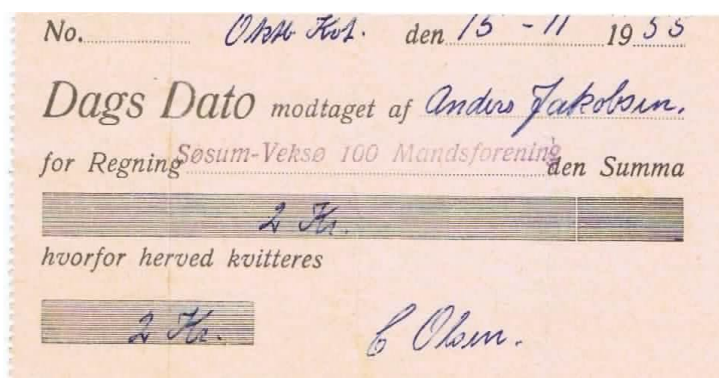 No. Oktb Kvt. den 15 - 11 1955
Dags Dato modtaget af Anders Jakobsen.
for Regning Søsum-Veksø 100 Mandsforening den Summa
2 Kr.
hvorfor herved kvitteres
2 Kr. C Olsen.